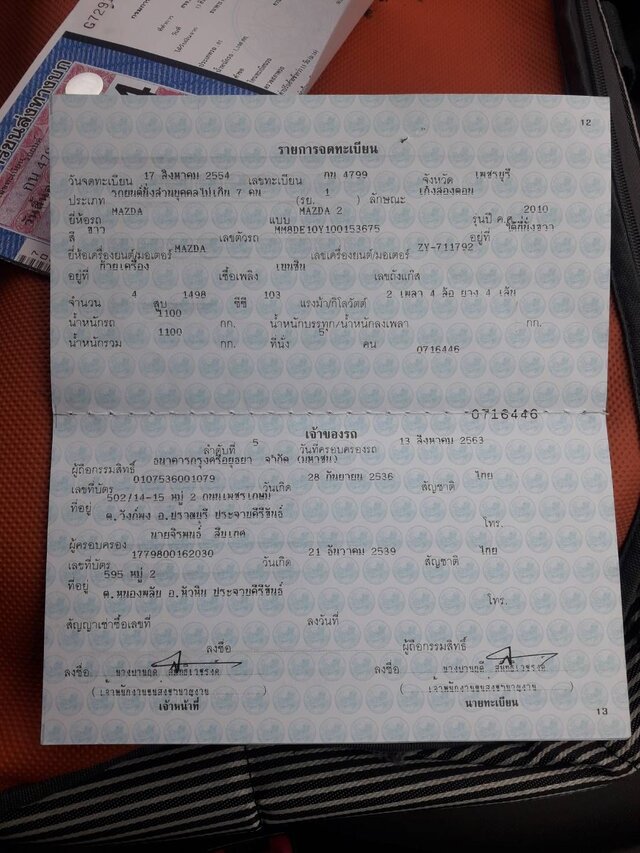 G729
รขนส่งทางบก
กน 479
12
รายการจดทะเบียน
วันจดทะเบียน 17 สิงหาคม 2554 เลขทะเบียน กน 4799 จังหวัด เพชรบุรี
ประเภท รถยนต์นั่งส่วนบุคคลไม่เกิน 7 คน (รย. 1 ) ลักษณะ เก๋งสองตอน
ยี่ห้อรถ MAZDA แบบ MAZDA 2 รุ่นปี ค.ศ. 2010
สี ขาว เลขตัวรถ MM8DE10Y100153675 อยู่ที่ ใต้ที่นั่งขวา
ยี่ห้อเครื่องยนต์/มอเตอร์ MAZDA เลขเครื่องยนต์/มอเตอร์ ZY-711792
อยู่ที่ ท้ายเครื่อง เชื้อเพลิง เบนซิน เลขถังแก๊ส
จำนวน 4 สูบ 1498 ซีซี 103 แรงม้า/กิโลวัตต์ 2 เพลา 4 ล้อ ยาง 4 เส้น
น้ำหนักรถ 1100 กก. น้ำหนักบรรทุก/น้ำหนักลงเพลา กก.
น้ำหนักรวม 1100 กก. ที่นั่ง 5 คน
0716446
0716446
เจ้าของรถ
ลำดับที่ 5 วันที่ครอบครองรถ 13 สิงหาคม 2563
ผู้ถือกรรมสิทธิ์ ธนาคารกรุงศรีอยุธยา จำกัด (มหาชน)
เลขที่บัตร 0107536001079 วันเกิด 28 กันยายน 2536 สัญชาติ ไทย
ที่อยู่ 502/14-15 หมู่ 2 ถนนเพชรเกษม
ต.วังก์พง อ.ปราณบุรี ประจวบคีรีขันธ์ โทร.
ผู้ครอบครอง นายจิรพนธ์
เลขที่บัตร 1779800162030 วันเกิด 21 ธันวาคม 2539 สัญชาติ ไทย
ที่อยู่ 595 หมู่ 2
ต.หนองพลับ อ.หัวหิน ประจวบคีรีขันธ์ โทร.
สัญญาเช่าซื้อเลขที่ ลงวันที่
ลงชื่อ ผู้ถือกรรมสิทธิ์
ลงชื่อ ลงชื่อ
( เจ้าพนักงานขนส่งชำนาญงาน ) ( เจ้าพนักงานขนส่งชำนาญงาน )
เจ้าหน้าที่ นายทะเบียน
13